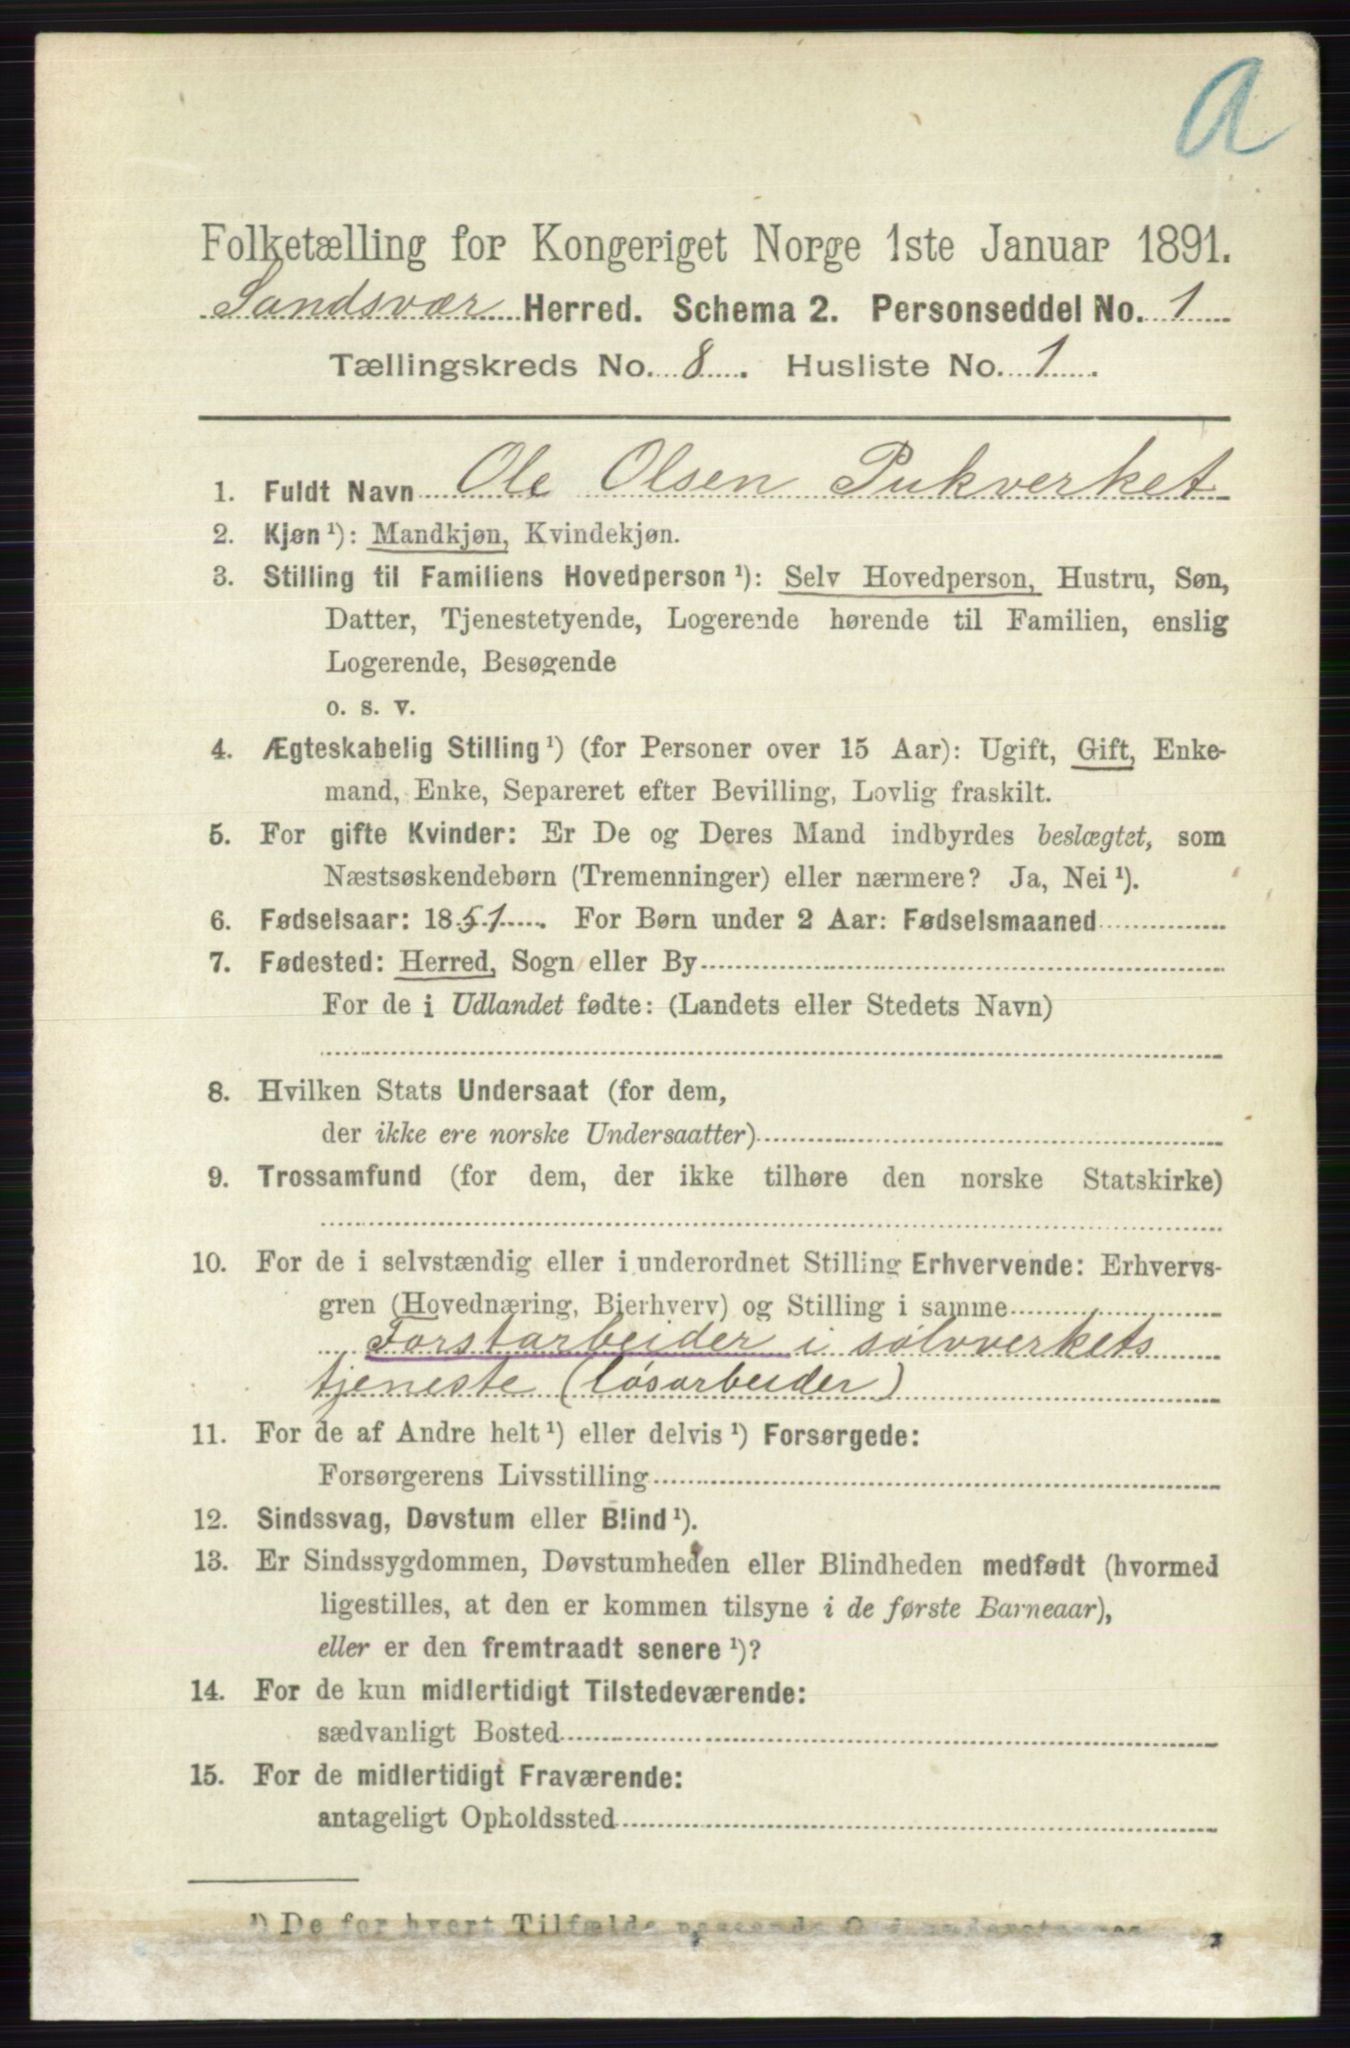 a
Folketælling for Kongeriget Norge 1ste Januar 1891.
Sandsvær Herred. Schema 2. Personseddel No. 1
Tællingskreds No. 8. Husliste No. 1.
1. Fuldt Navn Ole Olsen Pukverket
2. Kjøn¹): Mandkjøn, Kvindekjøn.
3. Stilling til Familiens Hovedperson¹): Selv Hovedperson, Hustru, Søn,
Datter, Tjenestetyende, Logerende hørende til Familien, enslig
Logerende, Besøgende
o. s. v.
4. Ægteskabelig Stilling¹) (for Personer over 15 Aar): Ugift, Gift, Enke-
mand, Enke, Separeret efter Bevilling, Lovlig fraskilt.
5. For gifte Kvinder: Er De og Deres Mand indbyrdes beslægtet, som
Næstsøskendebørn (Tremenninger) eller nærmere? Ja, Nei¹).
6. Fødselsaar: 1851. For Børn under 2 Aar: Fødselsmaaned
7. Fødested: Herred, Sogn eller By
For de i Udlandet fødte: (Landets eller Stedets Navn)
8. Hvilken Stats Undersaat (for dem,
der ikke ere norske Undersaatter)
9. Trossamfund (for dem, der ikke tilhøre den norske Statskirke)
10. For de i selvstændig eller i underordnet Stilling Erhvervende: Erhvervs-
gren (Hovednæring, Bierhverv) og Stilling i samme
Forstarbeider i sølvverkets
tjeneste (løsarbeider)
11. For de af Andre helt¹) eller delvis¹) Forsørgede:
Forsørgerens Livsstilling
12. Sindssvag, Døvstum eller Blind¹).
13. Er Sindssygdommen, Døvstumheden eller Blindheden medfødt (hvormed
ligestilles, at den er kommen tilsyne i de første Barneaar),
eller er den fremtraadt senere¹)?
14. For de kun midlertidigt Tilstedeværende:
sædvanligt Bosted
15. For de midlertidigt Fraværende:
antageligt Opholdssted
¹) De for hvert Tilfælde passende